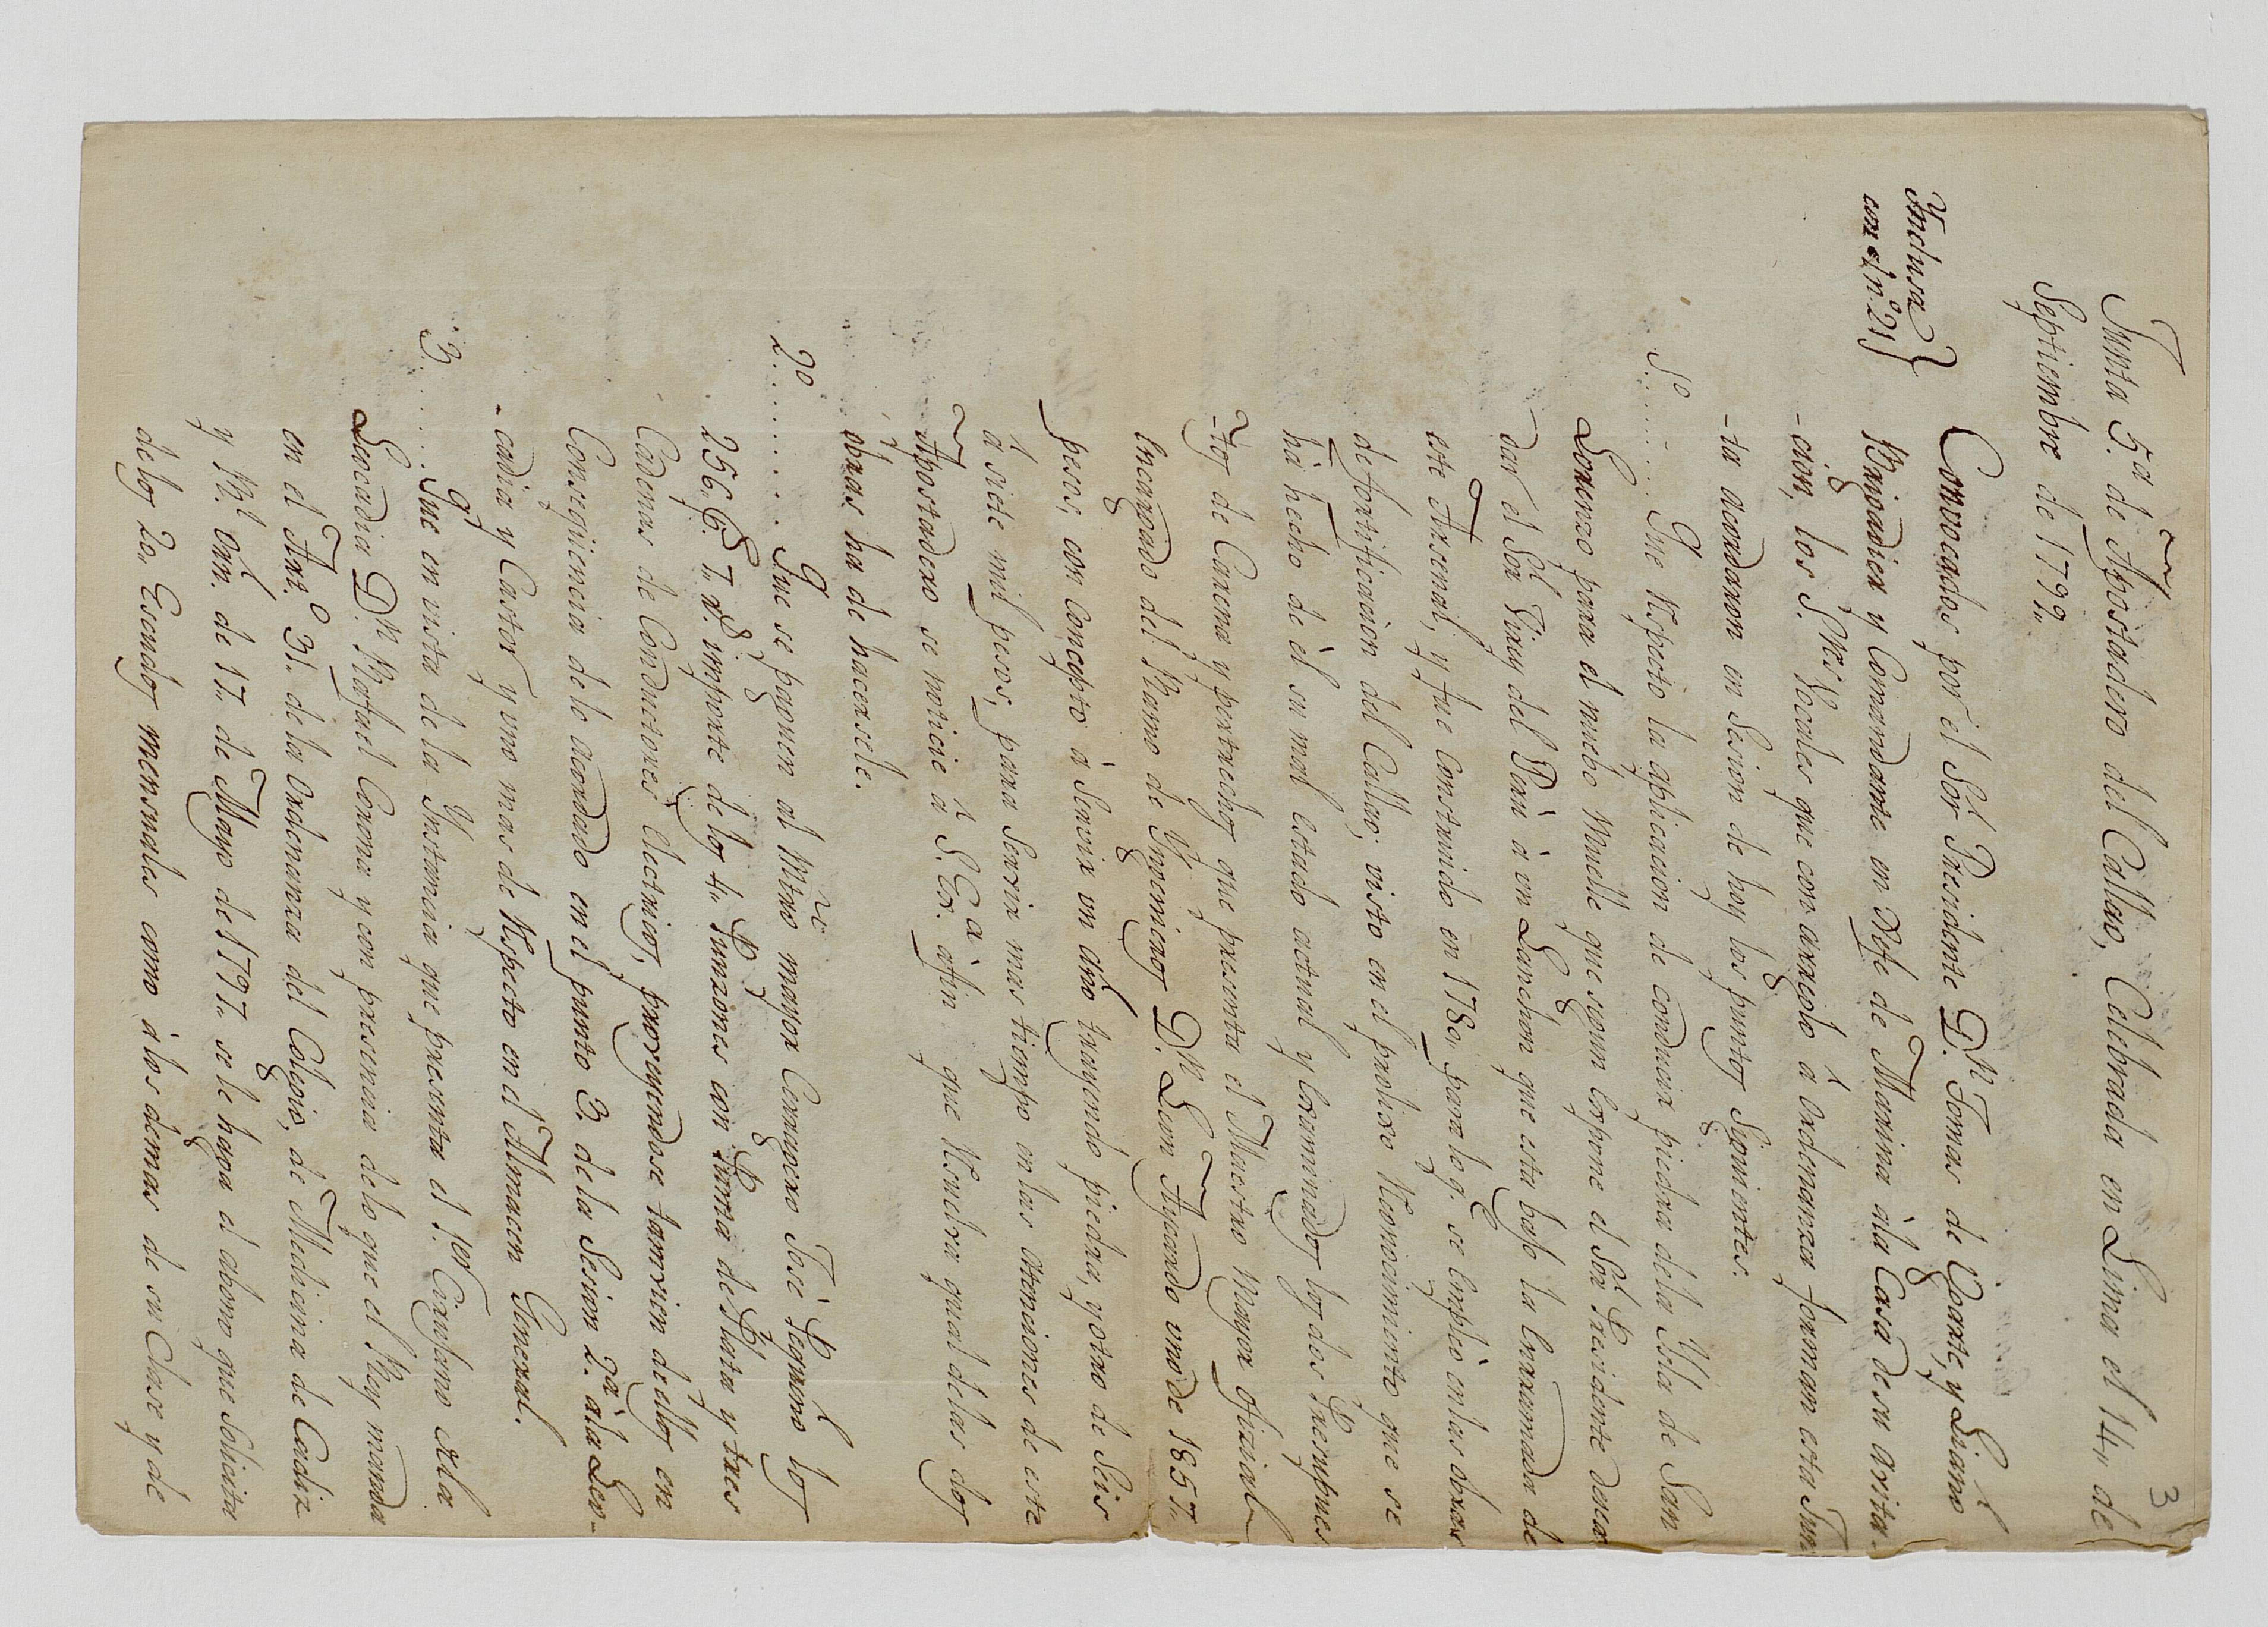 3
Junta 5.ª de Apostadero del Callao, Celebrada en Lima el 14,, de
Septiembre de 1799,,
Inclusa
con el nº 21
Convocados por el Sór Presidente D.n Tomas de Ugarte, y Liaño
Brigadier y Comandante en Xefe de Marina à la Casa de su avita-
-cion, los S.res Vocales que con arreglo à ordenanza forman esta Jun
-ta acordaron en Sesion de hoy los puntos Siguientes.
1º........ Que respecto la aplicacion de conducir piedra dela Ysla de San
Lorenzo para el nuebo Muelle que segun Expone el Sór Presidente desea
dar el Sór Virrey del Perù à un Lanchon que esta bajo la Enrramada de
este Arsenal, y fue Construido en 1780,, para lo q.e se Empleò en las obras
de fortificacion del Callao; visto en el prolixo Reconocimiento que se
hà hecho de èl su mal estado actual y Examinados los dos Presupues
-tos de Carena y pertrechos que presenta el Maestro Mayor Oficial
Encargado del Ramo de Yngenieros D.n Juan Aycardo uno de 1857,,
pesos, con Concepto à Servir un año trayendo piedra, y otro de Seis
à siete mil pesos, para Servir mas tiempo en las Atenciones de este
Apostadero se noticie à S. Ex.a àfin que Resuelva qual delas dos
obras ha de hacersele.
2º........ Que se paguen al Mtro mayor Cerragero José Segundo los
256,, p.s 7,, r.s importe delos 4,, Punzones con Punta de Plata y tres
Cadenas de Conductores Electricos, proveyendose tambien de ellos en
Consegüencia delo acordado en el punto 3. dela Sesion 2.ª àla Leo-
-cadia y Castor y uno mas de Respeto en el Almacen General.
3....... Que en vista de la Ynstancia que presenta el 1.er Cirujano dela
Leocadia D.n Rafael Corona y con presencia delo que el Rey manda
en el Art.º 31. de la Ordenanza del Colegio, de Medicina de Cadiz
y R.l Orn. de 17,, de Mayo de 1797,, se le haga el abono que Solicita
delos 20,, Escudos mensuales como à los demas de su Clase y de